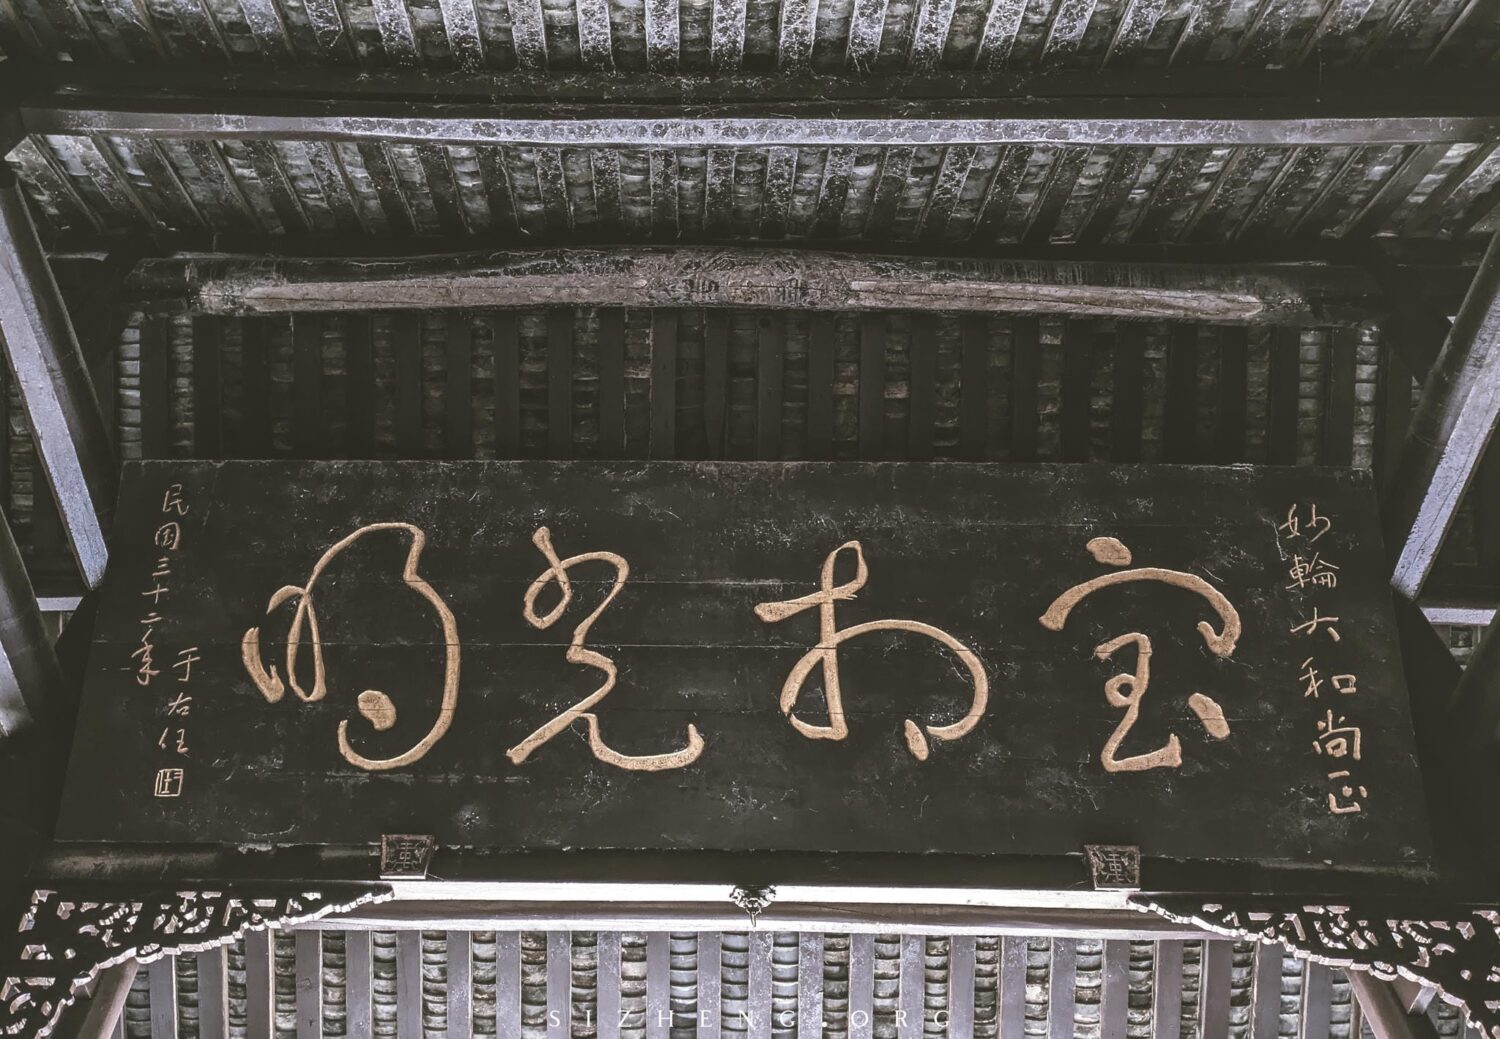 妙輪大和尚正
宝相光明
民国三十二年
于右任
SIZHENG.ORG